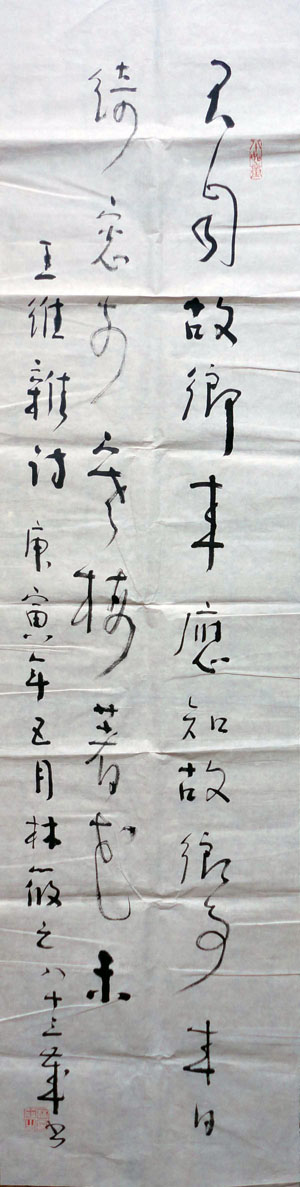 君自故鄉來應知故鄉事來日
綺窓前寒梅著花未
王維雜詩 庚寅年五月林筱之八十三歲書